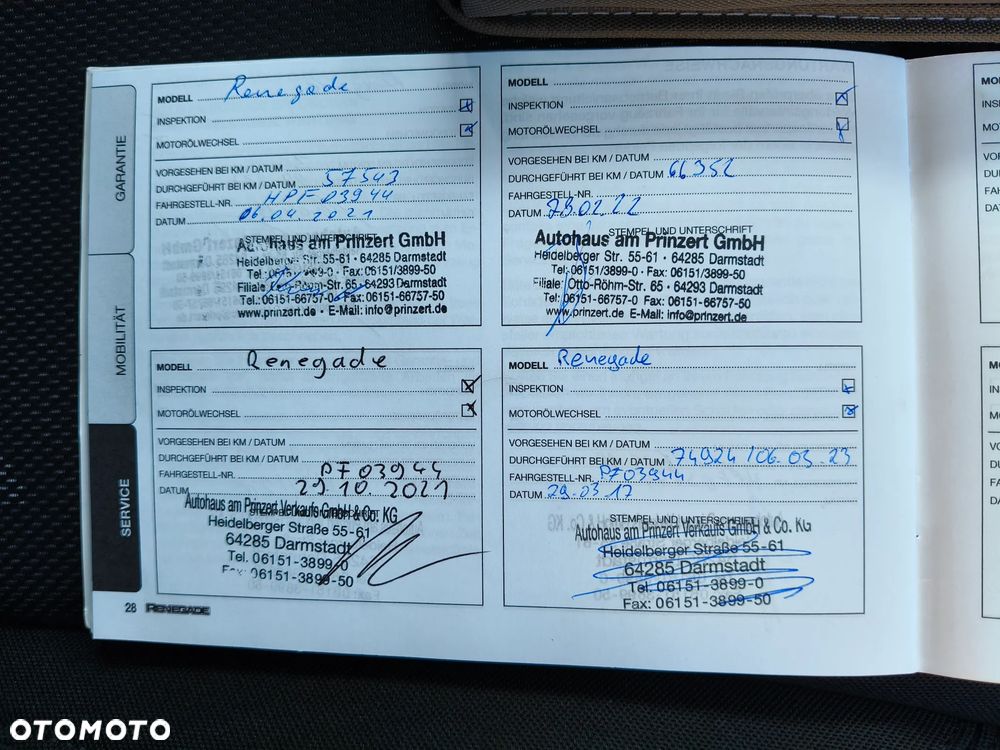 GARANTIE
MOBILITÄT
SERVICE
MODELL Renegade
INSPEKTION
MOTORÖLWECHSEL
VORGESEHEN BEI KM / DATUM
DURCHGEFÜHRT BEI KM / DATUM 57543
FAHRGESTELL-NR. HPF03944
DATUM 06.04.2021
STEMPEL UND UNTERSCHRIFT
Autohaus am Prinzert GmbH
Heidelberger Str. 55-61 • 64285 Darmstadt
Tel.: 06151/3899-0 • Fax: 06151/3899-50
Filiale: Otto-Röhm-Str. 65 • 64293 Darmstadt
Tel.: 06151-66757-0 Fax: 06151-66757-50
www.prinzert.de • E-Mail: info@prinzert.de
MODELL
INSPEKTION
MOTORÖLWECHSEL
VORGESEHEN BEI KM / DATUM
DURCHGEFÜHRT BEI KM / DATUM 66352
FAHRGESTELL-NR.
DATUM 23.02.22
STEMPEL UND UNTERSCHRIFT
Autohaus am Prinzert GmbH
Heidelberger Str. 55-61 • 64285 Darmstadt
Tel.: 06151/3899-0 • Fax: 06151/3899-50
Filiale: Otto-Röhm-Str. 65 • 64293 Darmstadt
Tel.: 06151-66757-0 Fax: 06151-66757-50
www.prinzert.de E-Mail: info@prinzert.de
MODELL Renegade
INSPEKTION
MOTORÖLWECHSEL
VORGESEHEN BEI KM / DATUM
DURCHGEFÜHRT BEI KM / DATUM
FAHRGESTELL-NR. PF03944
DATUM 29.10.2021
Autohaus am Prinzert Verkaufs GmbH & Co. KG
Heidelberger Straße 55-61
64285 Darmstadt
Tel. 06151-3899-0
Fax: 06151-3899-50
MODELL Renegade
INSPEKTION
MOTORÖLWECHSEL
VORGESEHEN BEI KM / DATUM
DURCHGEFÜHRT BEI KM / DATUM 74924 / 06.03.23
FAHRGESTELL-NR. PF03944
DATUM 29.03.17
STEMPEL UND UNTERSCHRIFT
Autohaus am Prinzert Verkaufs GmbH & Co. KG
Heidelberger Straße 55-61
64285 Darmstadt
Tel. 06151-3899-0
Fax: 06151-3899-50
28 RENEGADE
OTOMOTO